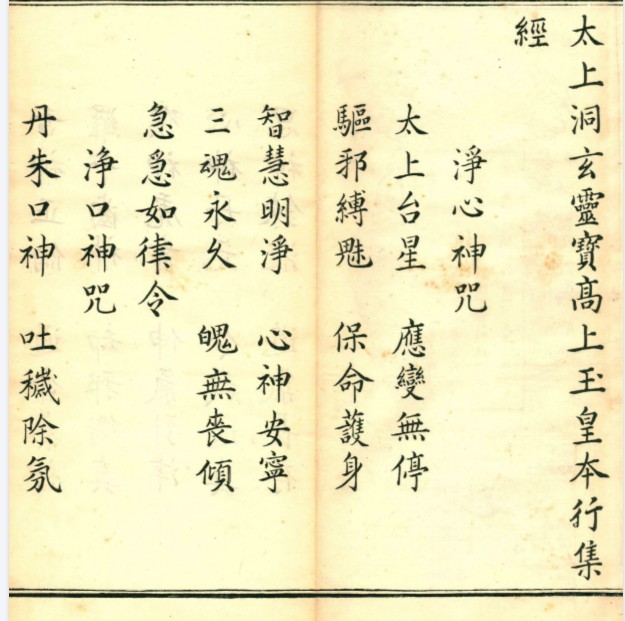 太上洞玄靈寶高上玉皇本行集
經
淨心神咒
太上台星 應變無停
驅邪縛魅 保命護身
智慧明淨 心神安寧
三魂永久 魄無喪傾
急急如律令
淨口神咒
丹朱口神 吐穢除氛